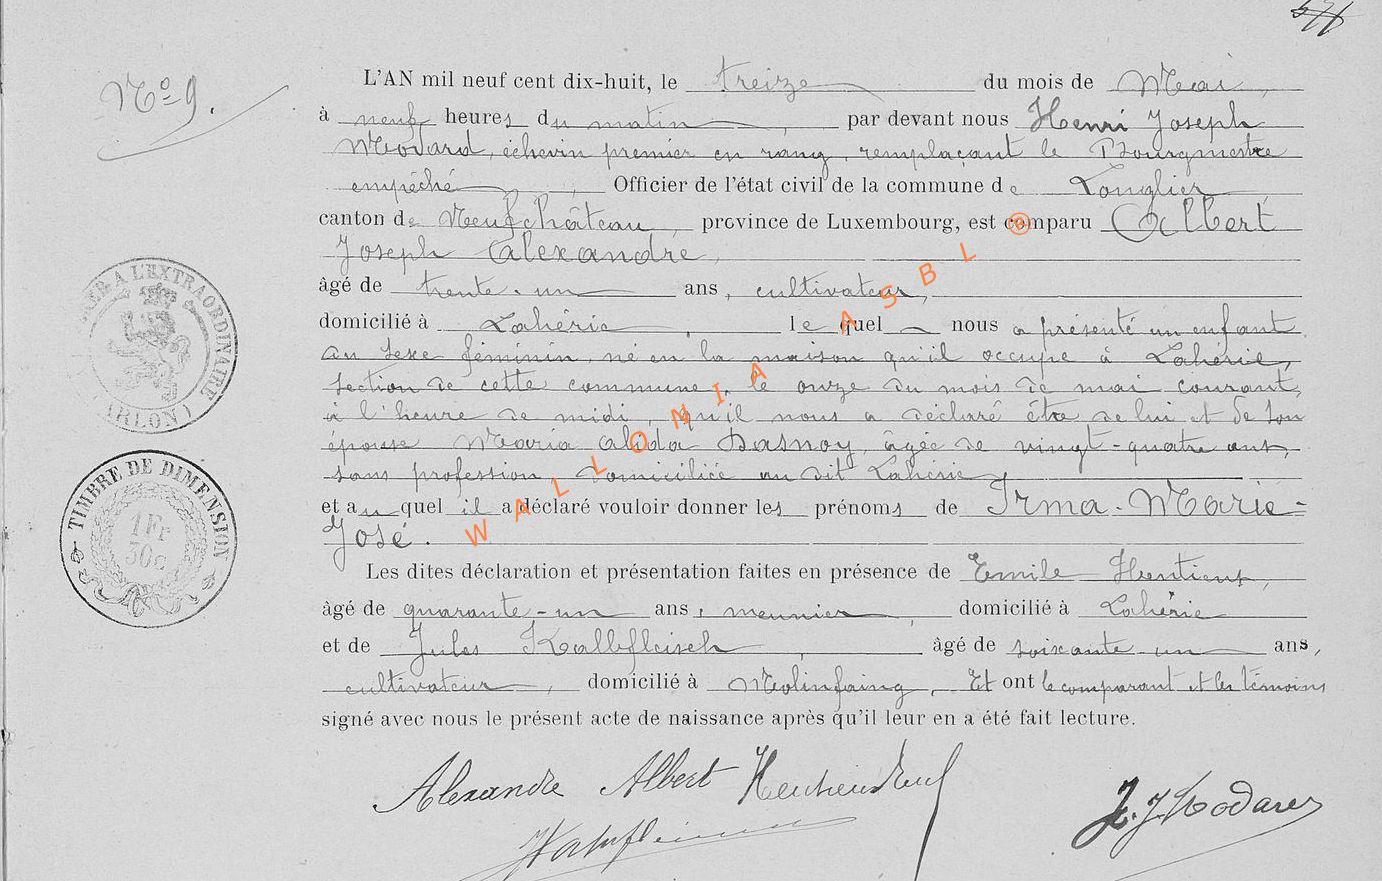 N° 9.
L'AN mil neuf cent dix-huit, le treize du mois de Mai,
à neuf heures du matin, par devant nous Henri Joseph
Modard, échevin premier en rang, remplaçant le Bourgmestre
empêché, Officier de l'état civil de la commune de Longlier,
canton de Neufchâteau, province de Luxembourg, est comparu Albert
Joseph Alexandre,
âgé de trente-un ans, cultivateur,
domicilié à Lahérie, lequel nous a présenté un enfant
du sexe féminin, né en la maison qu'il occupe à Lahérie,
section de cette commune, le onze du mois de mai courant,
à l'heure de midi, qu'il nous a déclaré être de lui et de son
épouse Maria Alida Dasnoy, âgée de vingt-quatre ans,
sans profession, domiciliée au dit Lahérie
et auquel il a déclaré vouloir donner les prénoms de Irma-Marie-
José.
Les dites déclaration et présentation faites en présence de Emile
âgé de quarante-un ans, meunier, domicilié à Lahérie
et de Jules Kalbfleisch, âgé de soixante-un ans,
cultivateur, domicilié à Molinfaing, Et ont le comparant et les témoins
signé avec nous le présent acte de naissance après qu'il leur en a été fait lecture.
Alexandre Albert
H. J. Modard
À L'EXTRAORDINAIRE
(ARLON)
TIMBRE DE DIMENSION
1 Fr
30c
WALLONIA ASBL ©